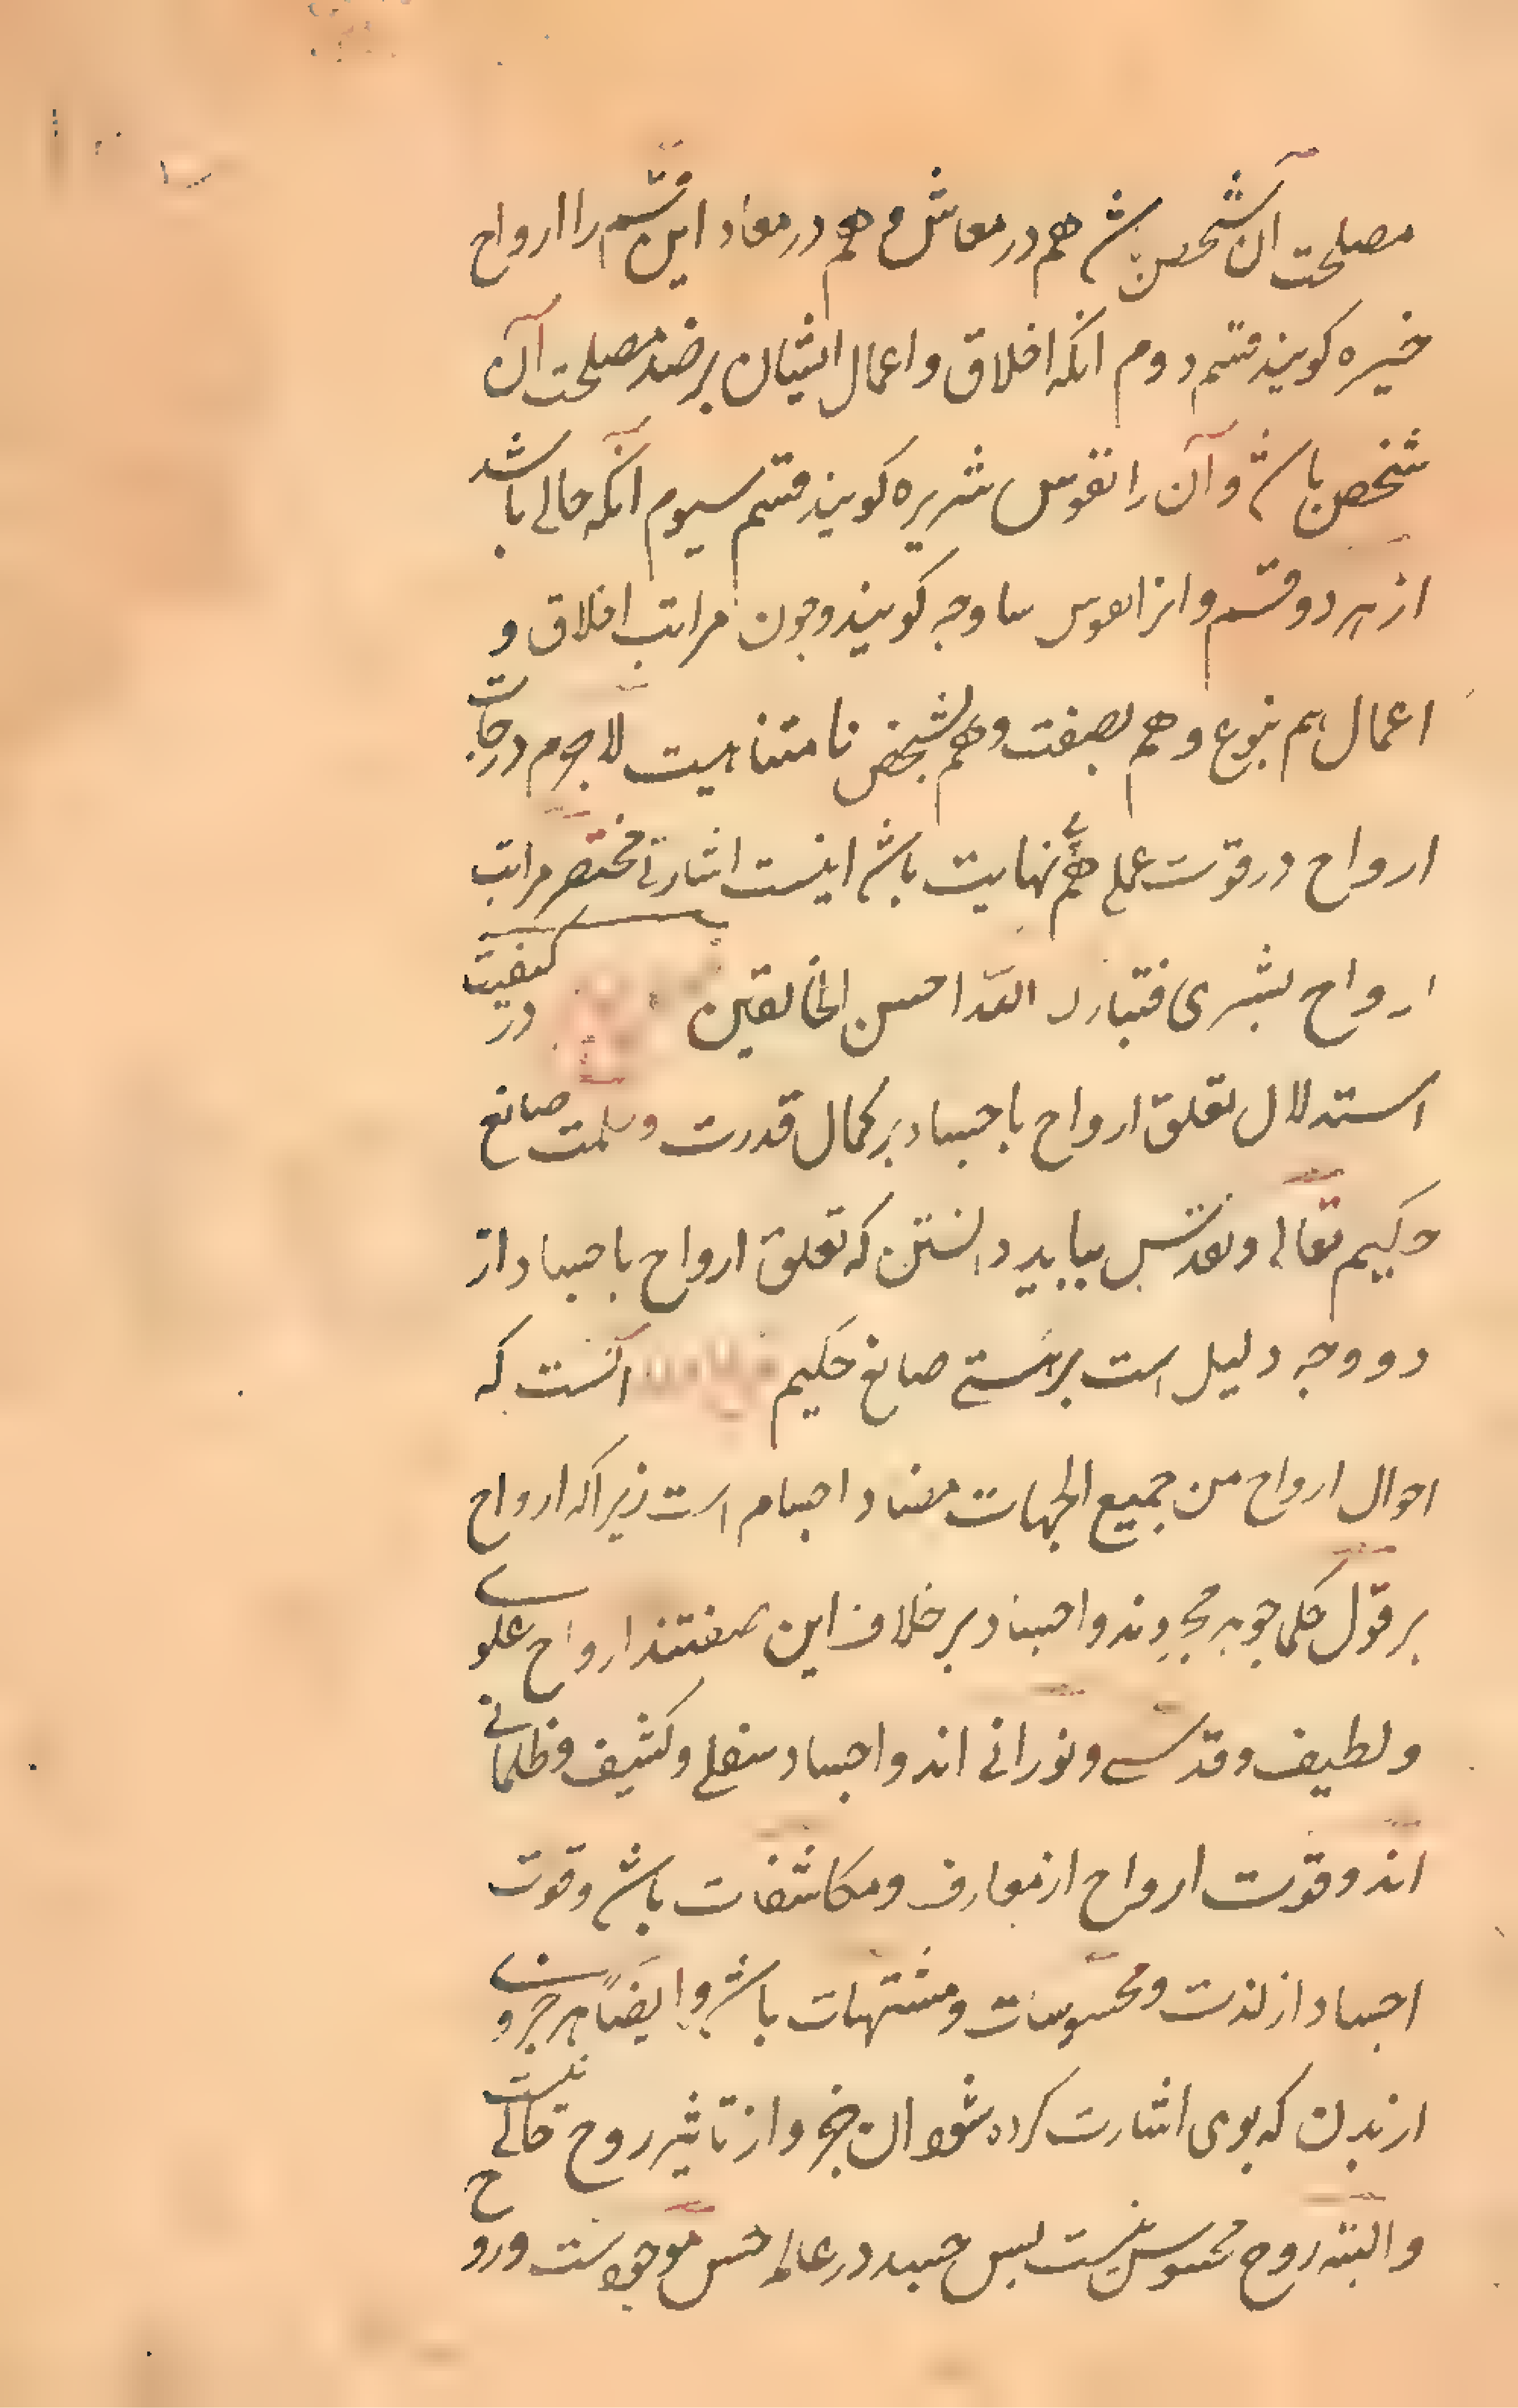 مصلحت آن شخص باشد هم در معاش و هم در معاد این قسم را ارواح
خیره کویند قسم دوم انکه اخلاق و اعمال ایشان بر ضد مصلحت آن
شخص باشد و آن را نفوس شریره کویند قسم سیوم آنکه خالی باشد
از هر دو قسم و انرا نفوس ساوجه کویند و چون مراتب اخلاق و
اعمال هم بنوع و هم بصفت و هم بشخص نامتناهیست لاجرم درجات
ارواح در قوت عملی هم بی نهایت باشد اینست اشارتی مختصر مراتب
ارواح بشری فتبارك الله احسن الخالقین در کیفیت
استدلال تعلق ارواح باجساد بر کمال قدرت و حکمت صانع
حکیم تعالی و تقدس بباید دانستن که تعلق ارواح باجساد از
دو وجه دلیل است بر هستی صانع حکیم آنست که
احوال ارواح من جمیع الجهات مضاد اجسام است زیراکه ارواح
بر قول حکما جوهر مجردند و اجساد بر خلاف این صفتند ارواح علوی
و لطیف و قدسی و نورانی اند و اجساد سفلی و کثیف و ظلمانی
اند و قوت ارواح از معارف و مکاشفات باشد و قوت
اجساد از لذت و محسوسات و مشتهات باشد و ایضاً هر جزوی
از بدن که بوی اشارت کرده شود ان جزو از تاثیر روح خالی نیست
و البته روح محسوس نیست پس جسد در عالم حس موجودست و روح